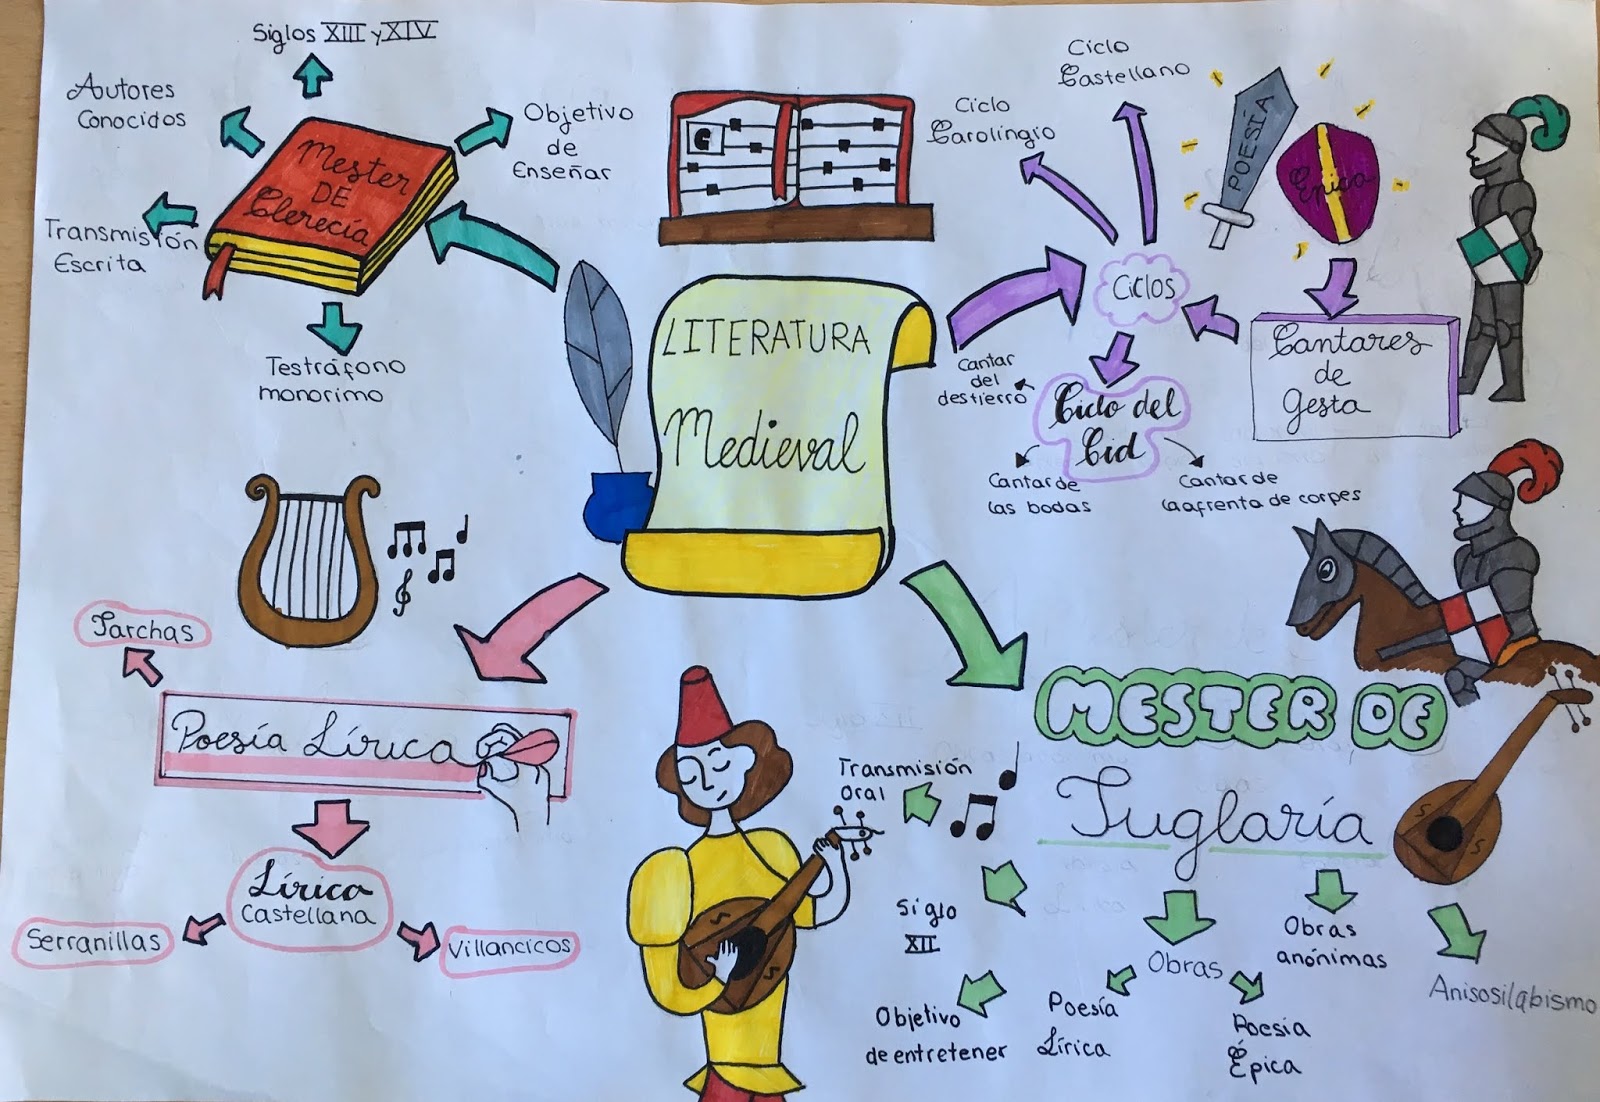 Siglos XIII y XIV
Autores
Conocidos
Objetivo
de
Enseñar
Mester
DE
Clerecía
Transmisión
Escrita
Testráfono
monorimo
LITERATURA
Medieval
Ciclo
Castellano
Ciclo
Carolingio
POESÍA
Épica
Ciclos
Cantares
de
Gesta
Cantar
del
destierro
Ciclo del
Cid
Cantar de
las bodas
Cantar de
la afrenta de corpes
Jarchas
Poesía Lírica
Lírica
Castellana
Serranillas
Villancicos
MESTER DE
Juglaría
Transmisión
Oral
Siglo
XII
Objetivo
de entretener
Obras
Poesía
Lírica
Poesía
Épica
Obras
anónimas
Anisosilabismo